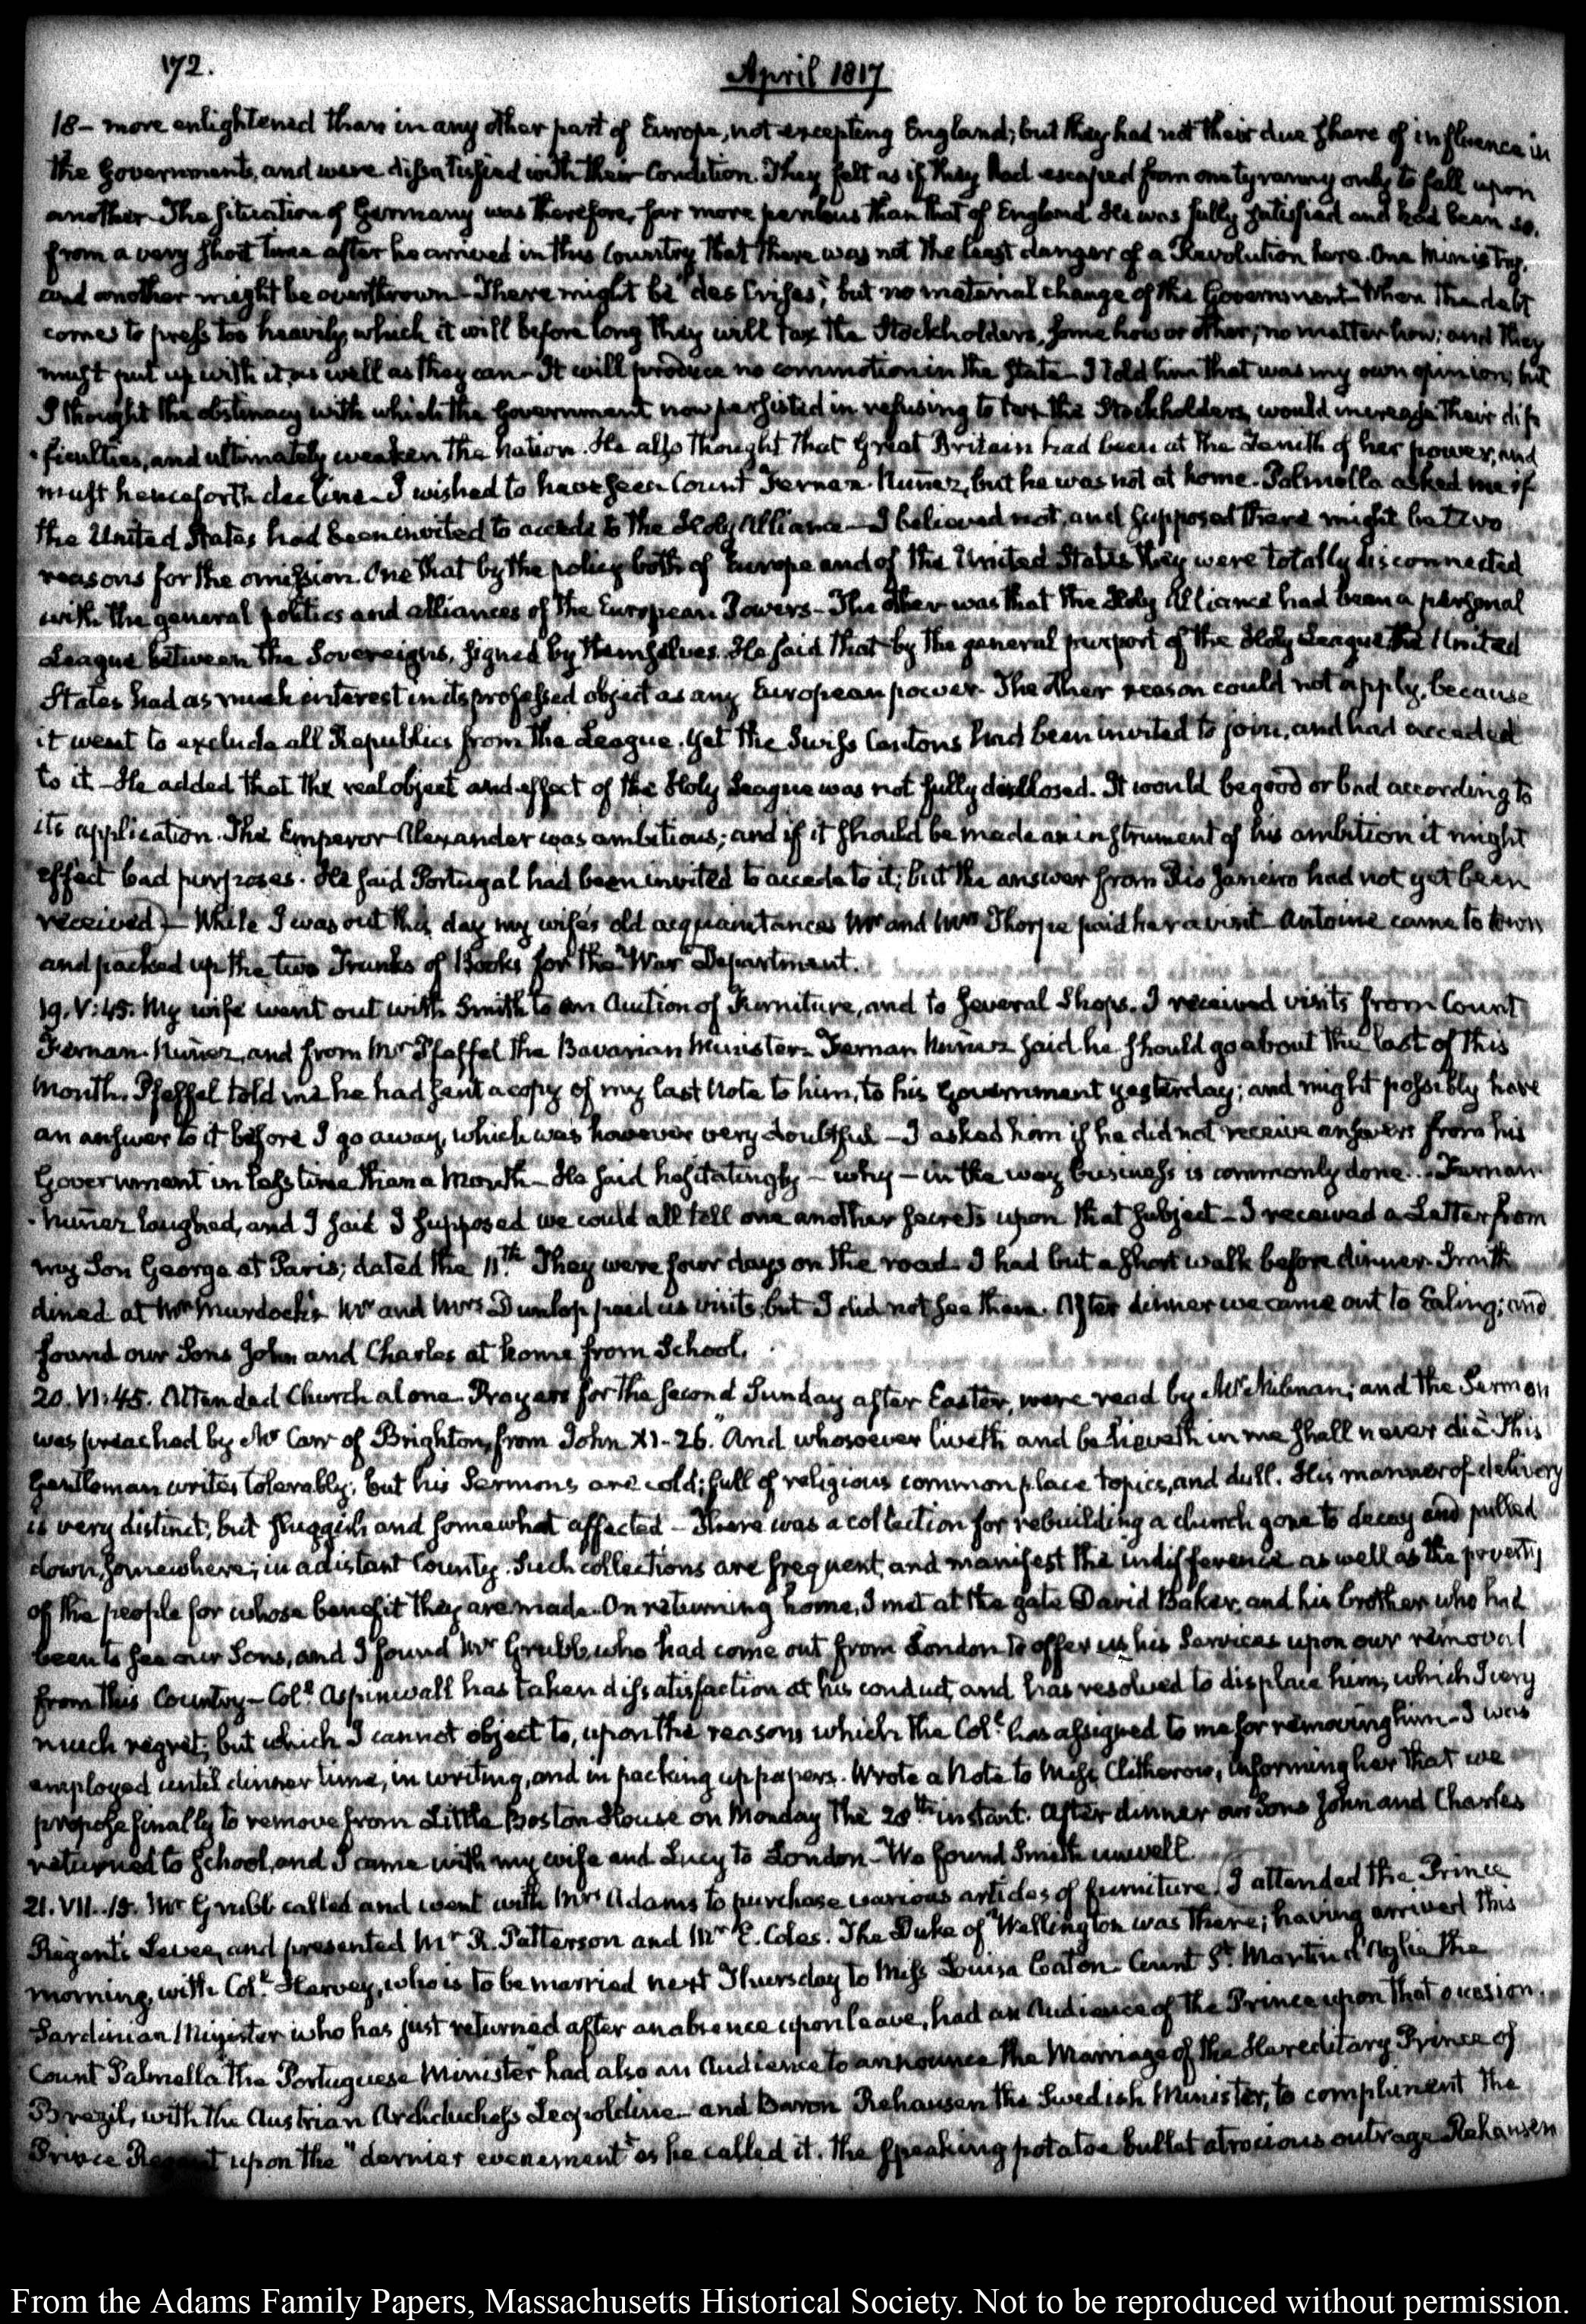 172.
April 1817
18 — more enlightened than in any other part of Europe, not excepting England; but they had not their due share of influence in
the Governments, and were dissatisfied with their Condition. They felt as if they had escaped from one tyranny only to fall upon
another — The situation of Germany was therefore, far more perilous than that of England. He was fully satisfied and had been so,
from a very short time after he arrived in this Country that there was not the least danger of a Revolution here. One Ministry,
and another might be overthrown — There might be "des Crises", but no material change of the Government — When the debt
comes to press too heavily, which it will before long they will tax the Stockholders, some how or other; no matter how; and they
must put up with it, as well as they can — It will produce no commotion in the State — I told him that was my own opinion; but
I thought the obstinacy with which the Government now persisted in refusing to tax the Stockholders, would increase their dif-
-ficulties, and ultimately weaken the Nation. He also thought that Great Britain had been at the Zenith of her power, and
must henceforth decline — I wished to have seen Count Fernan-Nuñez, but he was not at home. Palmella asked me if
the United States had been invited to accede to the Holy Alliance — I believed not, and supposed there might be two
reasons for the omission. One that by the policy both of Europe and of the United States they were totally disconnected
with the general politics and alliances of the European Powers — The other was that the Holy Alliance had been a personal
League between the Sovereigns, signed by themselves. He said that by the general purport of the Holy League the United
States had as much interest in its professed object as any European power. The other reason could not apply, because
it went to exclude all Republics from the League. Yet the Swiss Cantons had been invited to join, and had acceded
to it — He added that the real object and effect of the Holy League was not fully disclosed. It would be good or bad according to
its application. The Emperor Alexander was ambitious; and if it should be made an instrument of his ambition it might
effect bad purposes. He said Portugal had been invited to accede to it; but the answer from Rio Janeiro had not yet been
received) — While I was out this day my wife's old acquaintances Mr and Mrs Thorpe paid her a visit — Antoine came to town
and packed up the two Trunks of Books for the War Department.
19. V:45. My wife went out with Smith to an Auction of Furniture, and to several Shops. I received visits from Count
Fernan-Nuñez, and from Mr Pfeffel the Bavarian Minister. Fernan Nuñez said he should go about the last of this
Month. Pfeffel told me he had sent a copy of my last Note to him, to his Government yesterday; and might possibly have
an answer to it before I go away, which was however very doubtful — I asked him if he did not receive answers from his
Government in less time than a Month — He said hesitatingly — why — in the way business is commonly done... Fernan-
-Nuñez laughed, and I said I supposed we could all tell one another secrets upon that subject — I received a Letter from
my Son George at Paris; dated the 11th. They were four days on the road. I had but a short walk before dinner. Smith
dined at Mr Murdock's. Mr and Mrs Dunlop paid us visits, but I did not see them. After dinner we came out to Ealing; and
found our Sons John and Charles at home from School.
20. VI:45. Attended Church alone. Prayers for the second Sunday after Easter, were read by Mr Milman; and the Sermon
was preached by Mr Carr of Brighton, from John XI-26. "And whosoever liveth and believeth in me shall never die" This
Gentleman writes tolerably, but his Sermons are cold; full of religious common place topics, and dull. His manner of delivery
is very distinct, but sluggish and somewhat affected — There was a collection for rebuilding a church gone to decay and pulled
down, somewhere, in a distant County. Such collections are frequent, and manifest the indifference as well as the poverty
of the people for whose benefit they are made. On returning home, I met at the gate David Baker, and his brother who had
been to see our Sons, and I found Mr Grubb, who had come out from London to offer us his Services upon our removal
from this Country — Coll Aspinwall has taken dissatisfaction at his conduct, and has resolved to displace him; which I very
much regret; but which I cannot object to, upon the reasons which the Coll has assigned to me for removing him — I was
employed until dinner time, in writing, and in packing up papers. Wrote a Note to Miss Clitherow, informing her that we
propose finally to remove from Little Boston House on Monday the 28th instant. After dinner our Sons John and Charles
returned to School, and I came with my wife and Lucy to London — We found Smith unwell.
21. VII.15. Mr Grubb called and went with Mrs Adams to purchase various articles of furniture. (I attended the Prince
Regent's Levee, and presented Mr R. Patterson and Mr E. Coles. The Duke of Wellington was there; having arrived this
morning, with Coll Harvey, who is to be married next Thursday to Miss Louisa Caton — Count St Martin d'Aglie the
Sardinian Minister who has just returned after an absence upon leave, had an Audience of the Prince upon that occasion.
Count Palmella the Portuguese Minister had also an Audience to announce the Marriage of the Hereditary Prince of
Brazil, with the Austrian Archduchess Leopoldine — and Baron Rehausen the Swedish Minister, to compliment the
Prince Regent upon the "dernier evenement" as he called it. The speaking potatoe bullet atrocious outrage Rehausen
From the Adams Family Papers, Massachusetts Historical Society. Not to be reproduced without permission.